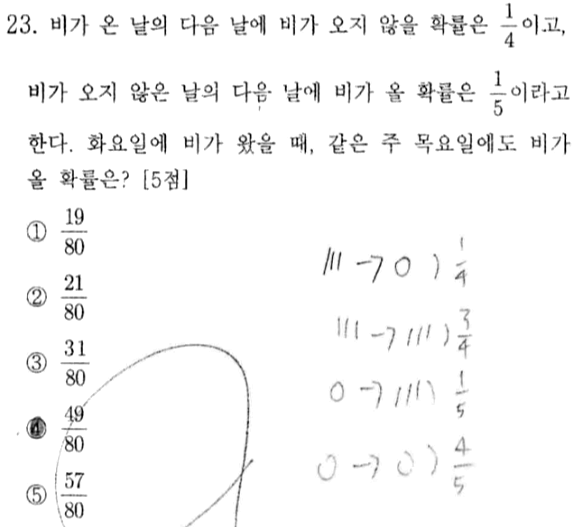 23. 비가 온 날의 다음 날에 비가 오지 않을 확률은 1/4이고,
비가 오지 않은 날의 다음 날에 비가 올 확률은 1/5이라고
한다. 화요일에 비가 왔을 때, 같은 주 목요일에도 비가
올 확률은? [5점]
① 19/80
② 21/80
③ 31/80
④ 49/80
⑤ 57/80
/// → 0 ) 1/4
/// → /// ) 3/4
0 → /// ) 1/5
0 → 0 ) 4/5